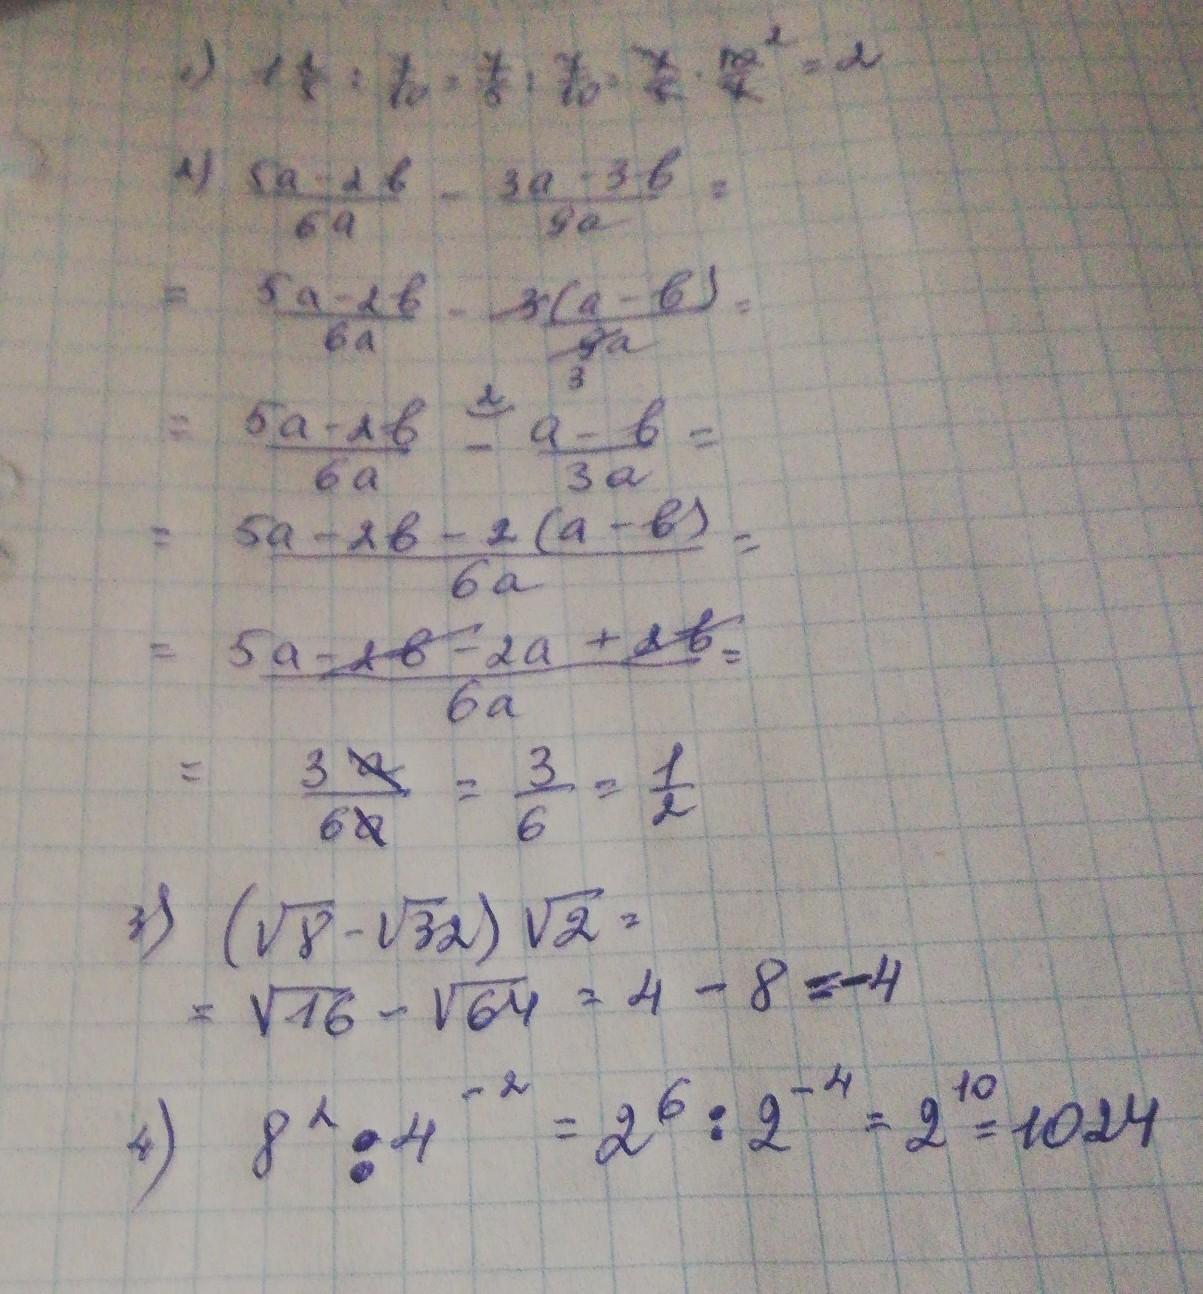 1) 1 2/5 : 7/10 = 7/5 : 7/10 = 7/5 · 10/7 ² = 2
2) (5a - 2b)/(6a) - (3a - 3b)/(9a) =
= (5a - 2b)/(6a) - 3(a - b)/(9a) =
3
2
= (5a - 2b)/(6a) - (a - b)/(3a) =
= (5a - 2b - 2(a - b))/(6a) =
= (5a - 2b - 2a + 2b)/(6a) =
= 3a/6a = 3/6 = 1/2
3) (√8 - √32) √2 =
= √16 - √64 = 4 - 8 = -4
4) 8² : 4⁻² = 2⁶ : 2⁻⁴ = 2¹⁰ = 1024